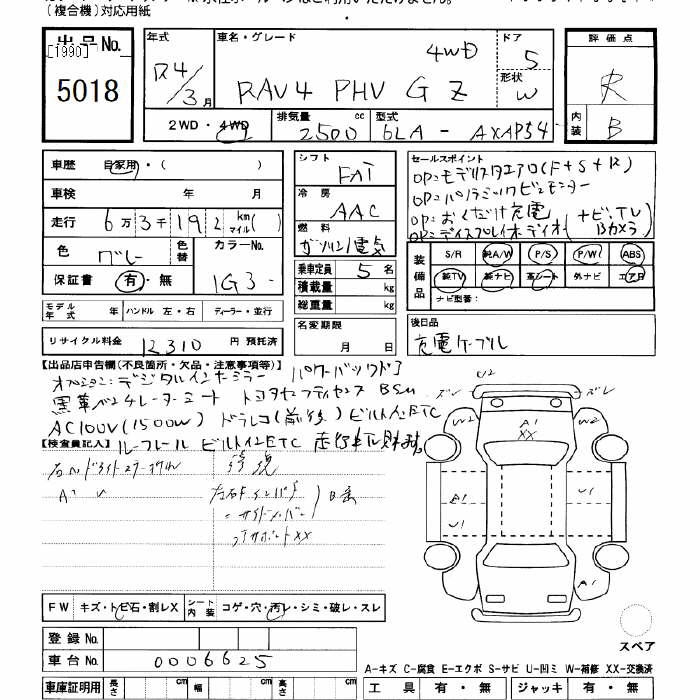 (複合機)対応用紙
出品No.
[1990]
5018
年式
R4/3月
車名・グレード
RAV4 PHV G Z
4WD
ドア
5
形状
W
評価点
R
内装
B
2WD・4WD
排気量
2500 cc
型式
6LA - AXAP54
車歴 自家用・( )
車検 年 月
走行 6万3千192 km マイル( )
色 グレー
色替
カラーNo. 1G3
保証書 有・無
シフト
FAT
冷房
AAC
燃料
ガソリン/電気
乗車定員 5 名
積載量 kg
総重量 kg
セールスポイント
OP=モデリスタエアロ(F+S+R)
OP=パノラミックビューモニター
OP=おくだけ充電
OP=ディスプレイオーディオ(ナビ,TV Bカメラ)
装備品
S/R 純A/W P/S P/W ABS
純TV 純ナビ 革シート 外ナビ エアB
ナビ型番:
モデル年式 年 ハンドル 左・右 ディーラー・並行
リサイクル料金 12310 円 預託済
名変期限
月 日
後日品
充電ケーブル
【出品店申告欄(不良箇所・欠品・注意事項等)】
オプション:デジタルインナーミラー パワーバックドア
黒革ベンチレーターシート トヨタセーフティセンス BSM
AC100V(1500W) ドラレコ(前後) ビルトインETC
【検査員記入】
ルーフレール ビルトインETC
修復
A1
XX
W2
U2
A1
XX
W2
U1
U1
A1
スペア
FW キズ・トビ石・割レX
シート内装 コゲ・穴・汚レ・シミ・破レ・スレ
登録No.
車台No. 0006625
A-キズ C-腐食 E-エクボ S-サビ U-凹ミ W-補修 XX-交換済
車庫証明用 長さ cm 幅 cm 高さ cm
工具 有・無 ジャッキ 有・無